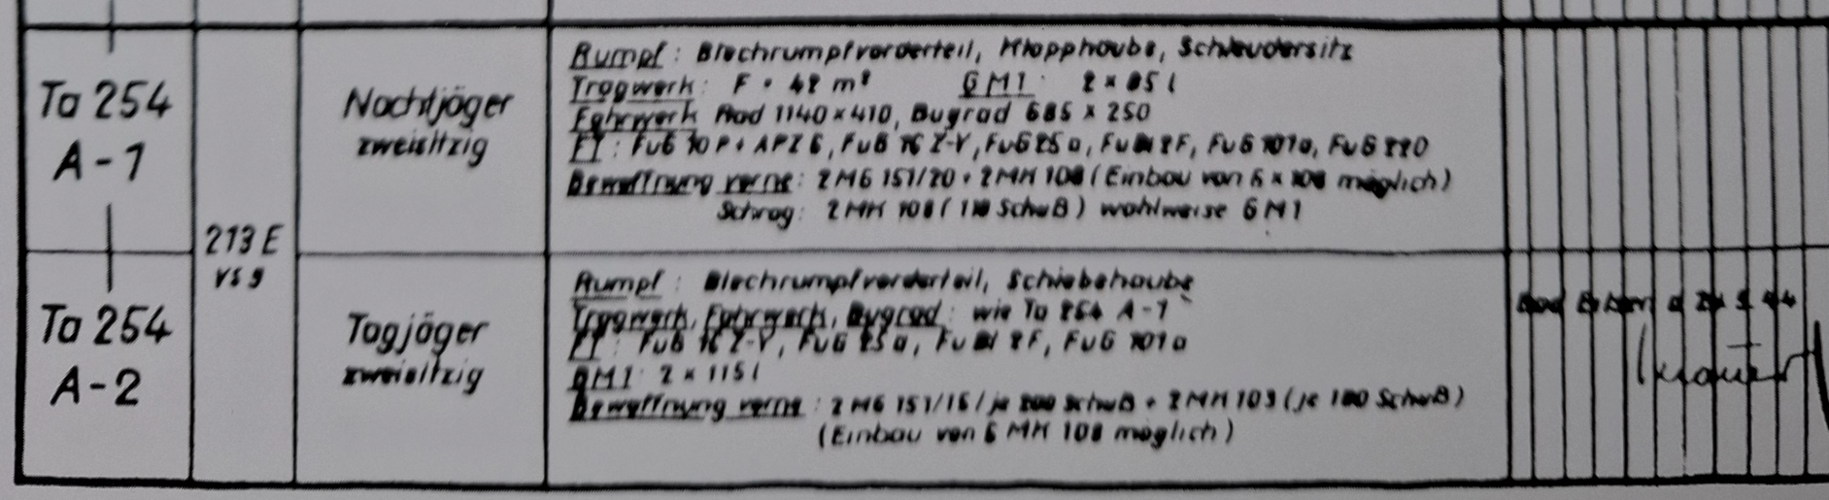 Ta 254
A-1
213 E
VS 9
Nachtjäger
zweisitzig
Rumpf: Blechrumpfvorderteil, Klapphaube, Schleudersitz
Tragwerk: F = 42 m² GM1: 2 × 85 l
Fahrwerk Rad 1140 × 410, Bugrad 685 × 250
FT: FuG 10 P + APZ 6, FuG 16 Z-Y, FuG 25a, FuBl 2F, FuG 101a, FuG 220
Bewaffnung vorne: 2 MG 151/20 + 2 MK 108 (Einbau von × 108 möglich)
Schräg: 2 MK 108 ( Schuß) wahlweise GM1
Ta 254
A-2
Tagjäger
zweisitzig
Rumpf: Blechrumpfvorderteil, Schiebehaube
Tragwerk, Fahrwerk, Bugrad: wie Ta 254 A-1
FT: FuG 16 Z-Y, FuG 25a, FuBl 2F, FuG 101a
GM1: 2 × 115 l
Bewaffnung vorne: 2 MG 151/ je Schuß + 2 MK 103 (je Schuß)
(Einbau von MK 108 möglich)
Bad